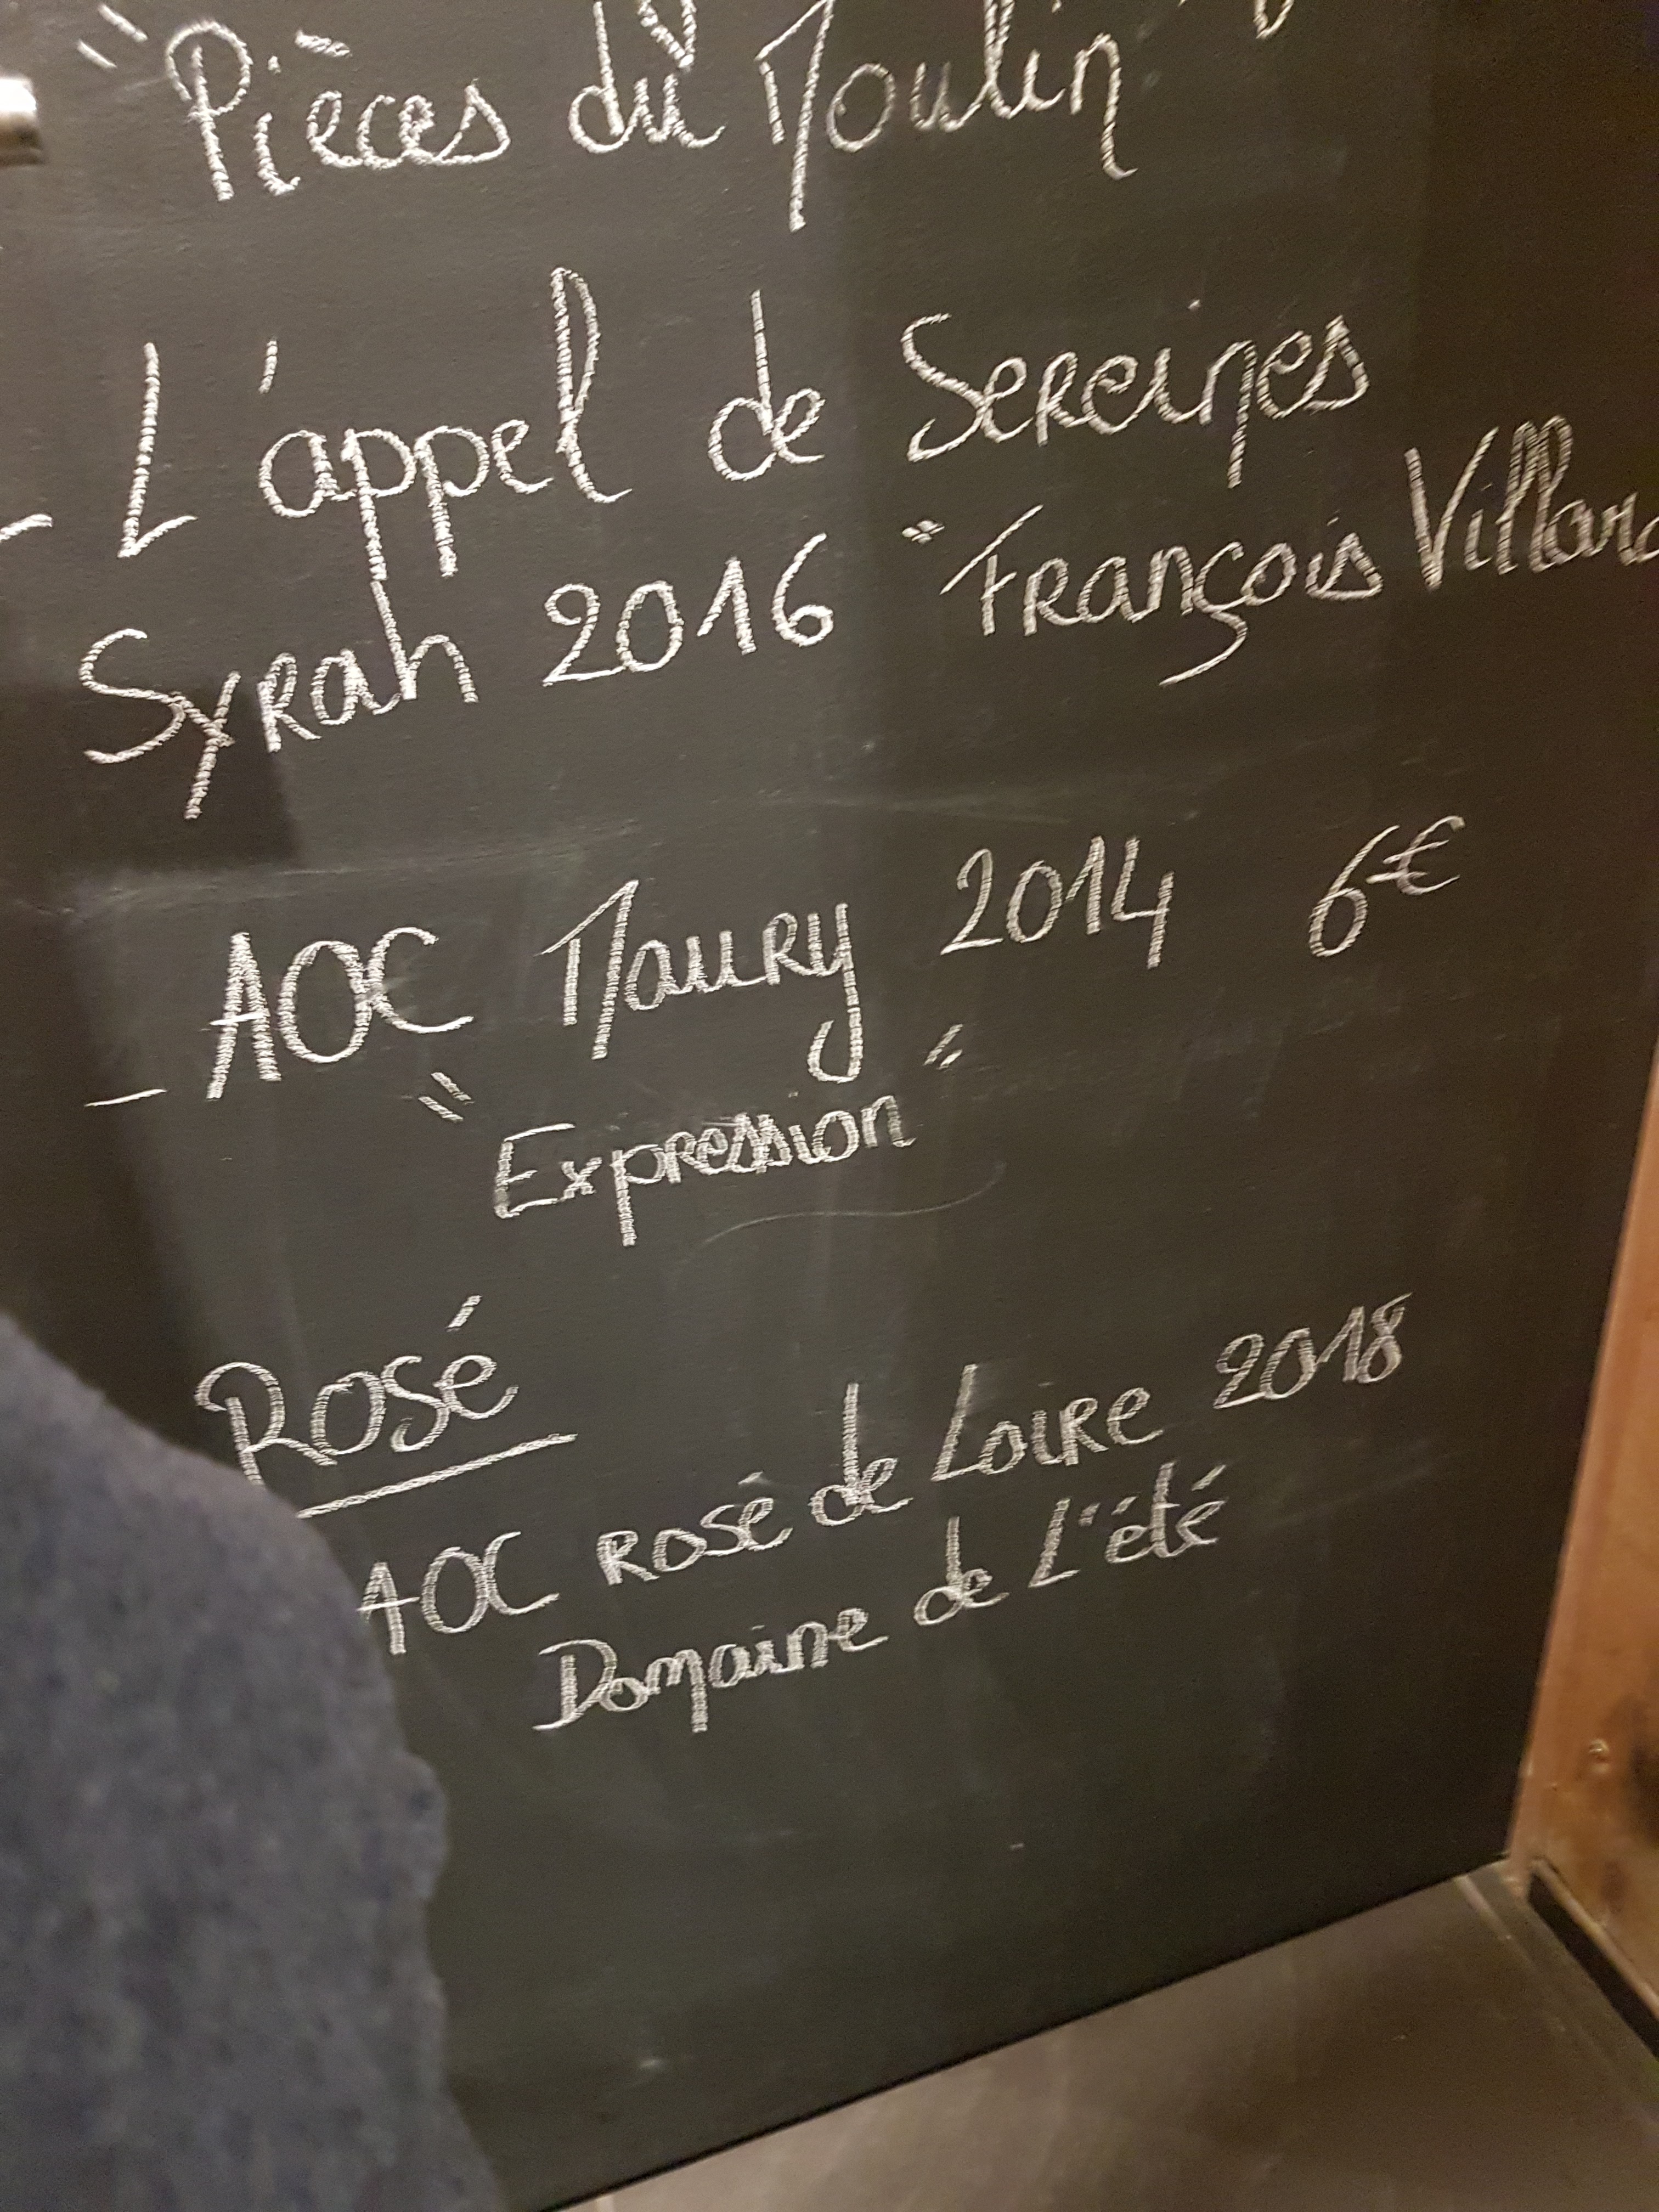 "Pièces du Moulin"
- L'appel de Sereines
Syrah 2016 "François Villard
- AOC Maury 2014 6€
"Expression"
Rosé
AOC rosé de Loire 2018
Domaine de L'été